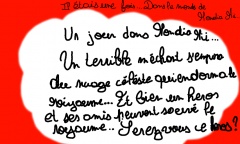 Il étais une fois... Dans le monde de
Hondia Hi...
Un jour dans Hondia Hi...
Un terrible méchant s'empara
du nuage céleste qui endorma le
royaume... Et bien un héros
et ses amis peuvent sauvé le
royaume... Serez vous ce héros?